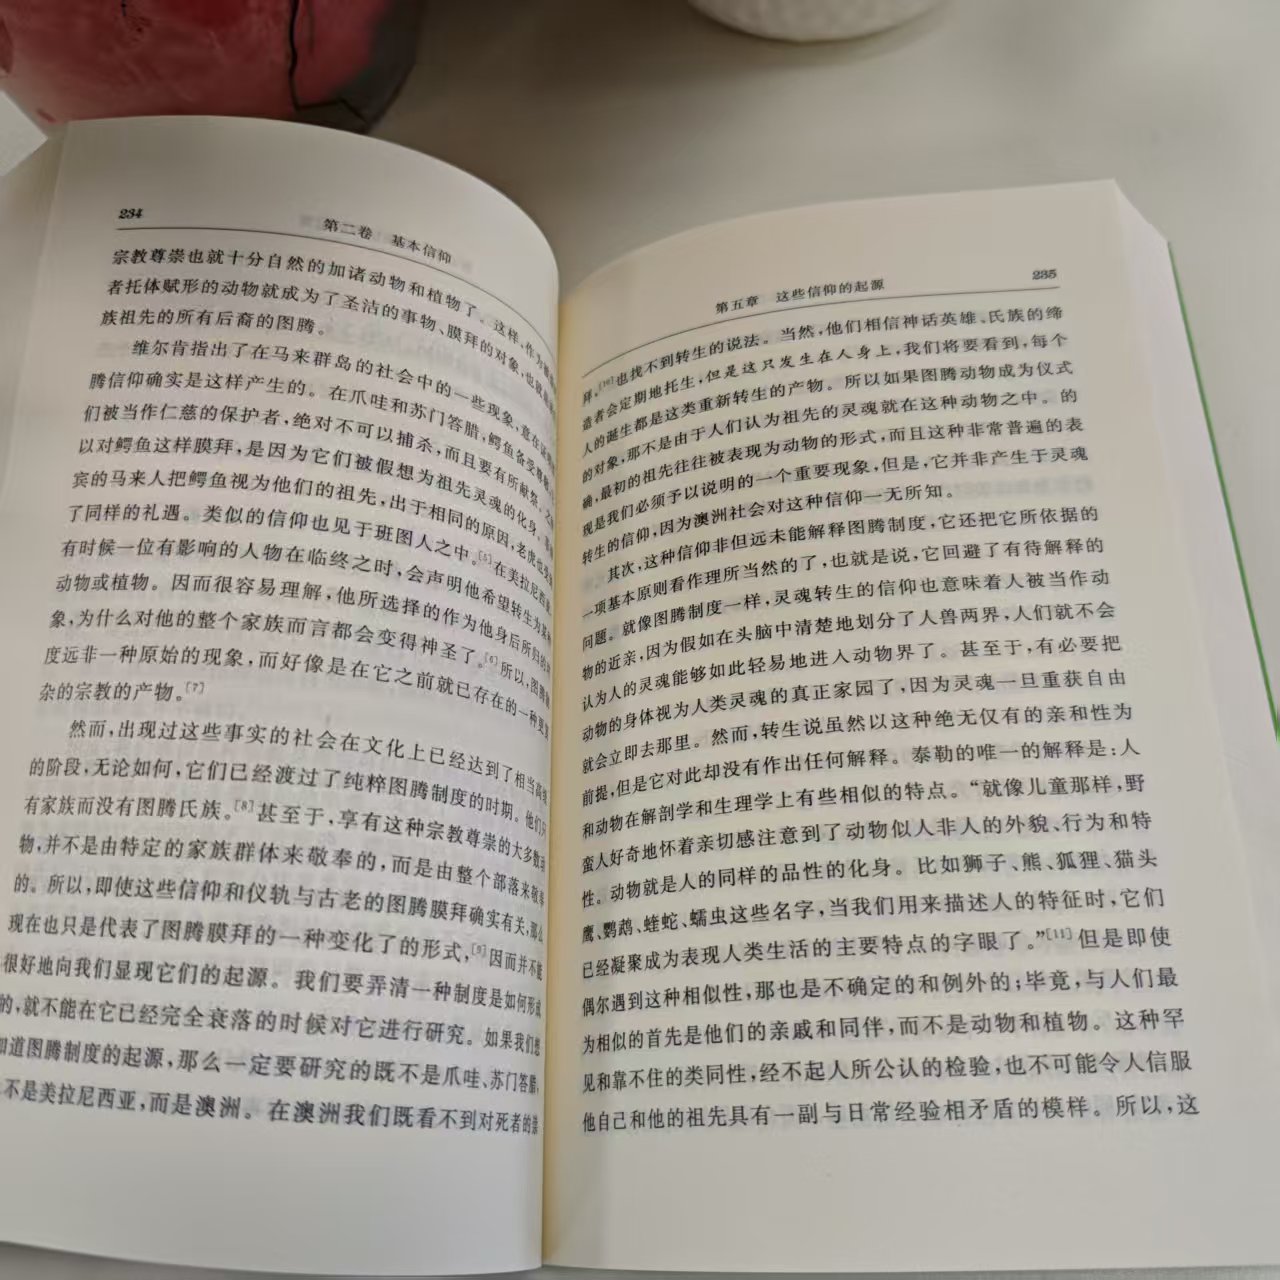 234
第二卷 基本信仰
宗教尊崇也就十分自然的加诸动物和植物了。这样,作为
者托体赋形的动物就成为了圣洁的事物、膜拜的对象,也就
族祖先的所有后裔的图腾。
维尔肯指出了在马来群岛的社会中的一些现象,意在
腾信仰确实是这样产生的。在爪哇和苏门答腊,鳄鱼备受尊
们被当作仁慈的保护者,绝对不可以捕杀,而且要有所献祭。之
以对鳄鱼这样膜拜,是因为它们被假想为祖先灵魂的化身。菲
宾的马来人把鳄鱼视为他们的祖先,出于相同的原因,老虎也受
了同样的礼遇。类似的信仰也见于班图人之中。[5]在美拉尼西亚,
有时候一位有影响的人物在临终之时,会声明他希望转生为某种
动物或植物。因而很容易理解,他所选择的作为他身后所归的
象,为什么对他的整个家族而言都会变得神圣了。[6]所以,图腾
度远非一种原始的现象,而好像是在它之前就已存在的一种更
杂的宗教的产物。[7]
然而,出现过这些事实的社会在文化上已经达到了相当高
的阶段,无论如何,它们已经渡过了纯粹图腾制度的时期。他们只
有家族而没有图腾氏族。[8]甚至于,享有这种宗教尊崇的大多数动
物,并不是由特定的家族群体来敬奉的,而是由整个部落来敬奉
的。所以,即使这些信仰和仪轨与古老的图腾膜拜确实有关,那么
现在也只是代表了图腾膜拜的一种变化了的形式,[9]因而并不能
很好地向我们显现它们的起源。我们要弄清一种制度是如何形成
的,就不能在它已经完全衰落的时候对它进行研究。如果我们想
知道图腾制度的起源,那么一定要研究的既不是爪哇、苏门答腊,
不是美拉尼西亚,而是澳洲。在澳洲我们既看不到对死者的崇
第五章 这些信仰的起源
235
拜,[10]也找不到转生的说法。当然,他们相信神话英雄、氏族的缔
造者会定期地托生,但是这只发生在人身上,我们将要看到,每个
人的诞生都是这类重新转生的产物。所以如果图腾动物成为仪式
的对象,那不是由于人们认为祖先的灵魂就在这种动物之中。的
确,最初的祖先往往被表现为动物的形式,而且这种非常普遍的表
现是我们必须予以说明的一个重要现象,但是,它并非产生于灵魂
转生的信仰,因为澳洲社会对这种信仰一无所知。
其次,这种信仰非但远未能解释图腾制度,它还把它所依据的
一项基本原则看作理所当然的了,也就是说,它回避了有待解释的
问题。就像图腾制度一样,灵魂转生的信仰也意味着人被当作动
物的近亲,因为假如在头脑中清楚地划分了人兽两界,人们就不会
认为人的灵魂能够如此轻易地进入动物界了。甚至于,有必要把
动物的身体视为人类灵魂的真正家园了,因为灵魂一旦重获自由
就会立即去那里。然而,转生说虽然以这种绝无仅有的亲和性为
前提,但是它对此却没有作出任何解释。泰勒的唯一的解释是:人
和动物在解剖学和生理学上有些相似的特点。“就像儿童那样,野
蛮人好奇地怀着亲切感注意到了动物似人非人的外貌、行为和特
性。动物就是人的同样的品性的化身。比如狮子、熊、狐狸、猫头
鹰、鹦鹉、蝰蛇、蠕虫这些名字,当我们用来描述人的特征时,它们
已经凝聚成为表现人类生活的主要特点的字眼了。”[11]但是即使
偶尔遇到这种相似性,那也是不确定的和例外的;毕竟,与人们最
为相似的首先是他们的亲戚和同伴,而不是动物和植物。这种罕
见和靠不住的类同性,经不起人所公认的检验,也不可能令人信服
他自己和他的祖先具有一副与日常经验相矛盾的模样。所以,这